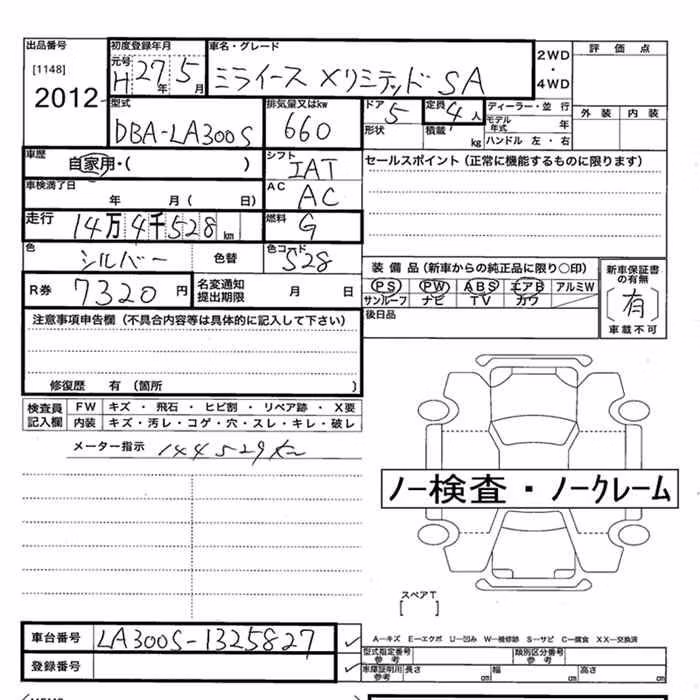 出品番号 初度登録年月 車名・グレード 評価点
[1148] 元号 H 27年 5月 ミライース Xリミテッド SA 2WD・4WD
2012 型式 排気量又はkw ドア 5 定員 4人 ディーラー・並行 外装 内装
DBA-LA300S 660 形状 積載 kg モデル年式 年
ハンドル 左・右
車歴 自家用・( ) シフト IAT セールスポイント(正常に機能するものに限ります)
車検満了日 年 月( 日) AC AC
走行 14万4千528km 燃料 G
色 シルバー 色替 色コード S28
装備品(新車からの純正品に限り○印) 新車保証書の有無
R券 7320円 名変通知提出期限 月 日 PS PW ABS エアB アルミW (有)
サンルーフ ナビ TV カワ 車載不可
注意事項申告欄(不具合内容等は具体的に記入して下さい) 後日品
修復歴 有(箇所 )
検査員記入欄 FW キズ・飛石・ヒビ割・リペア跡・X要
内装 キズ・汚レ・コゲ・穴・スレ・キレ・破レ
メーター指示 144529km
ノー検査・ノークレーム
スペアT
[ ]
車台番号 LA300S-1325827
A―キズ E―エクボ U―凹み W―補修跡 S―サビ C―腐食 XX―交換済
型式指定番号 参考 類別区分番号 参考
登録番号 車庫証明用 参考 長さ cm 幅 cm 高さ cm